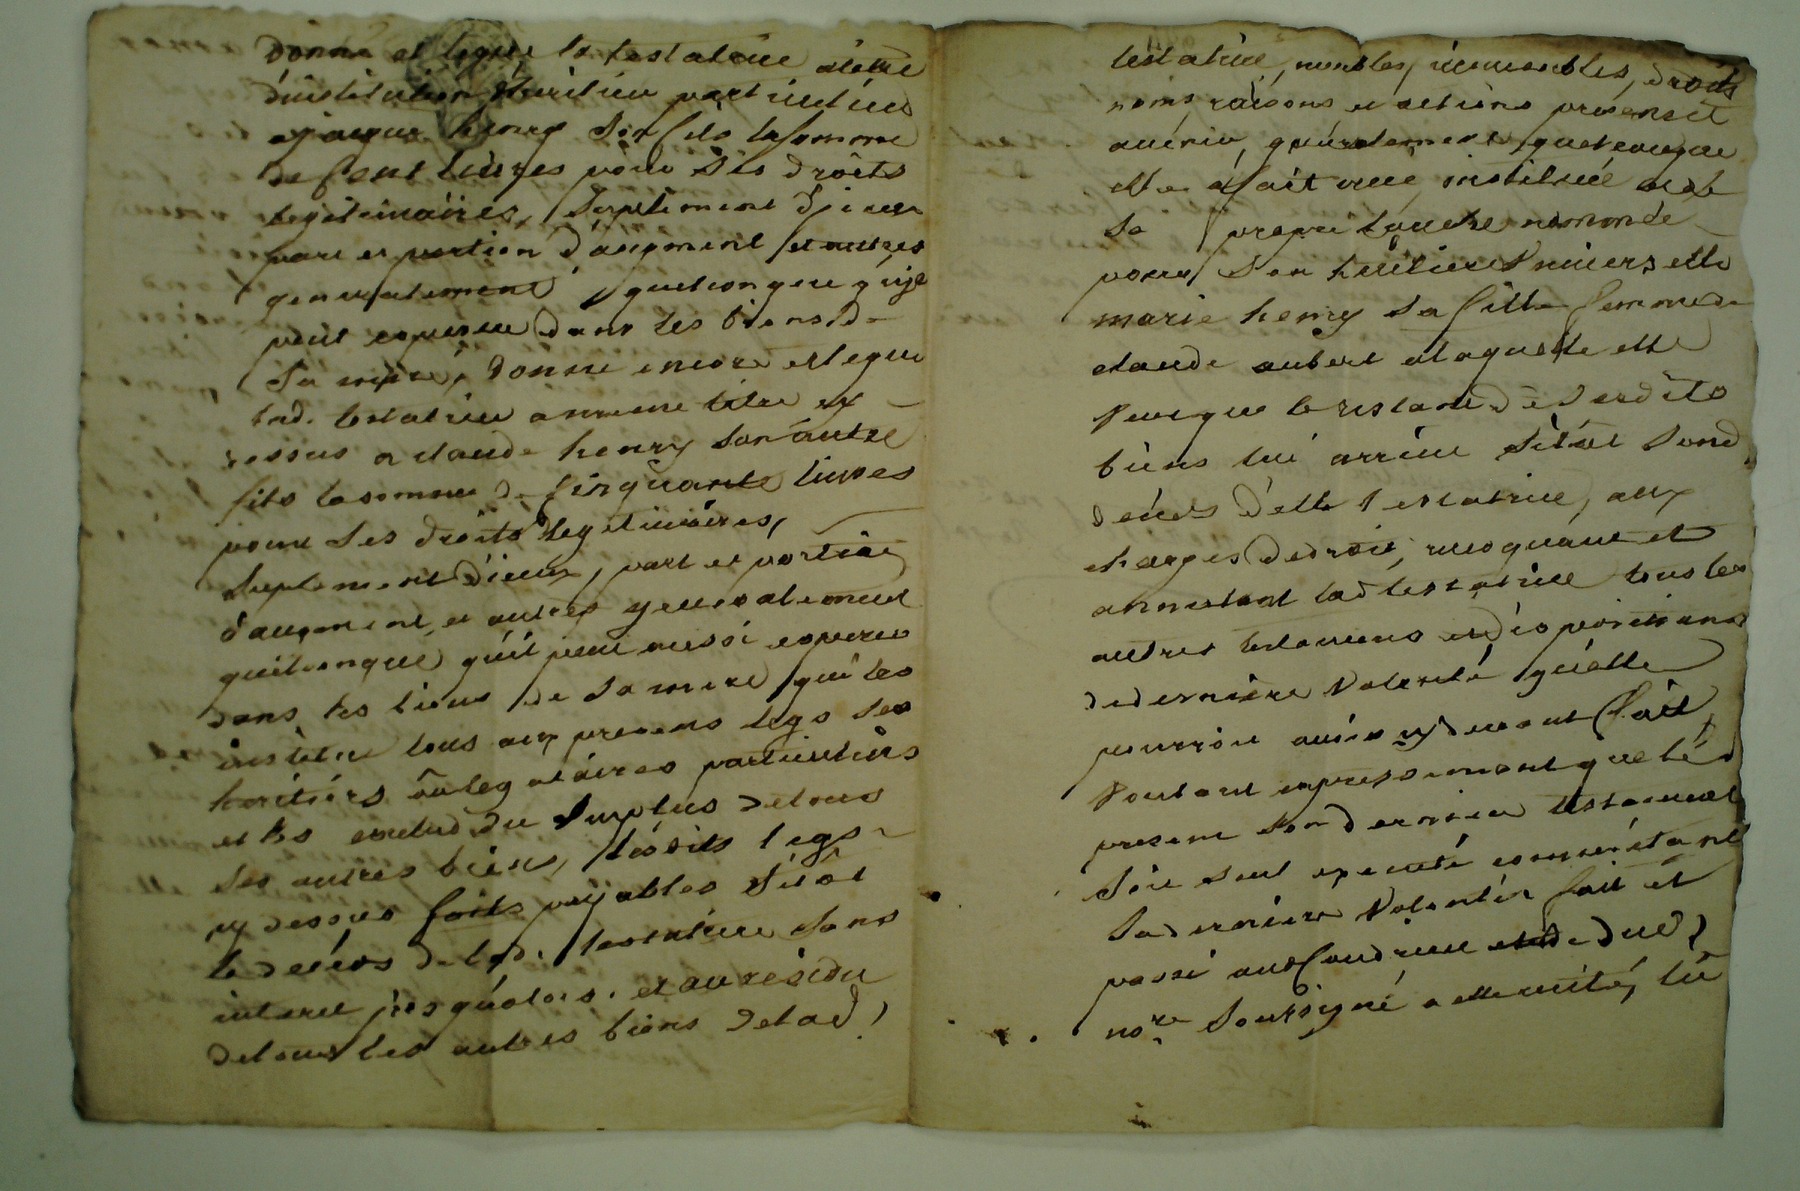 donne et legue la testatrice a tittre
d'institution d'heritiere particuliere
a jacque henry son fils la somme
de Cent livres pour ses droits
legitimaires, Suplement d'jceux
part et portion d'augment et autres
generalement quelconques qu'jl
peut esperer dans les biens de
sa mere, donne encore et legue
lad. testatrice a meme titre que
dessus a claude henry son autre
fils la somme de Cinquante livres
pour ses droits legitimaires,
Suplement d'iceux, part et portion
d'augment, et autres generalement
quelconque qu'il peut aussi esperer
dans les biens de sa mere qui les
institue tous aux presens legs ses
heritiers ou legataires particuliers
et les exclud du Surplus de tous
ses autres biens, lesdits legs
cy dessus faits payables Sitôt
le decéds de lad. testatrice sans
interet jusqu'alors. et au residu
de tous les autres biens de lad.
testatrice, meubles, immeubles, droits
noms raisons et actions présens et
avenir, généralement quelconque
elle a fait créé, institué et de
Sa propre bouche nommée
pour Son heritiere Universelle
marie henry Sa fille femme de
claude aubert a laquelle elle
Veut que le restant de Sesdits
biens lui arrive Sitôt Sond.
decéds d'elle testatrice, aux
charges de droit, revoquant et
annulant lad. testatrice tous les
autres testamens et dispositions
de derniere Volonté qu'elle
pourroit avoir cy devant fait,
Voulant expressement que led.
present Son dernier testament
Soit Seul executé comme étant
Sa derniere Volonté. fait et
passé au Coudrieu de
no.re Soussigné a elle recité, lû